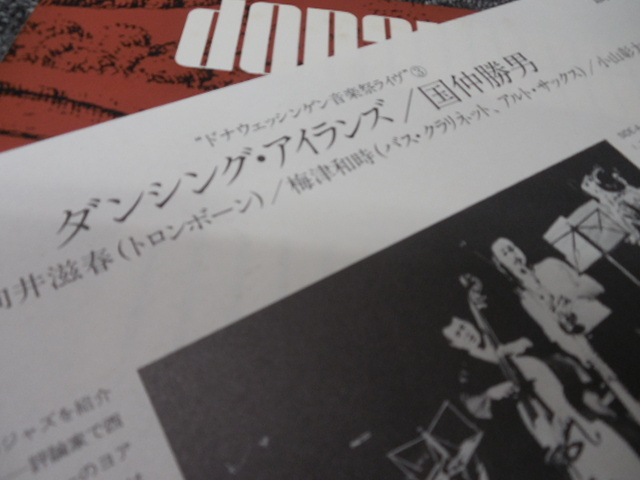 "ドナウエッシンゲン音楽祭ライヴ"③
ダンシング・アイランズ/国仲勝男
向井滋春(トロンボーン)/梅津和時(バス・クラリネット、アルト・サックス)/小山彰太
ジャズを紹介
評論家で西
のヨア